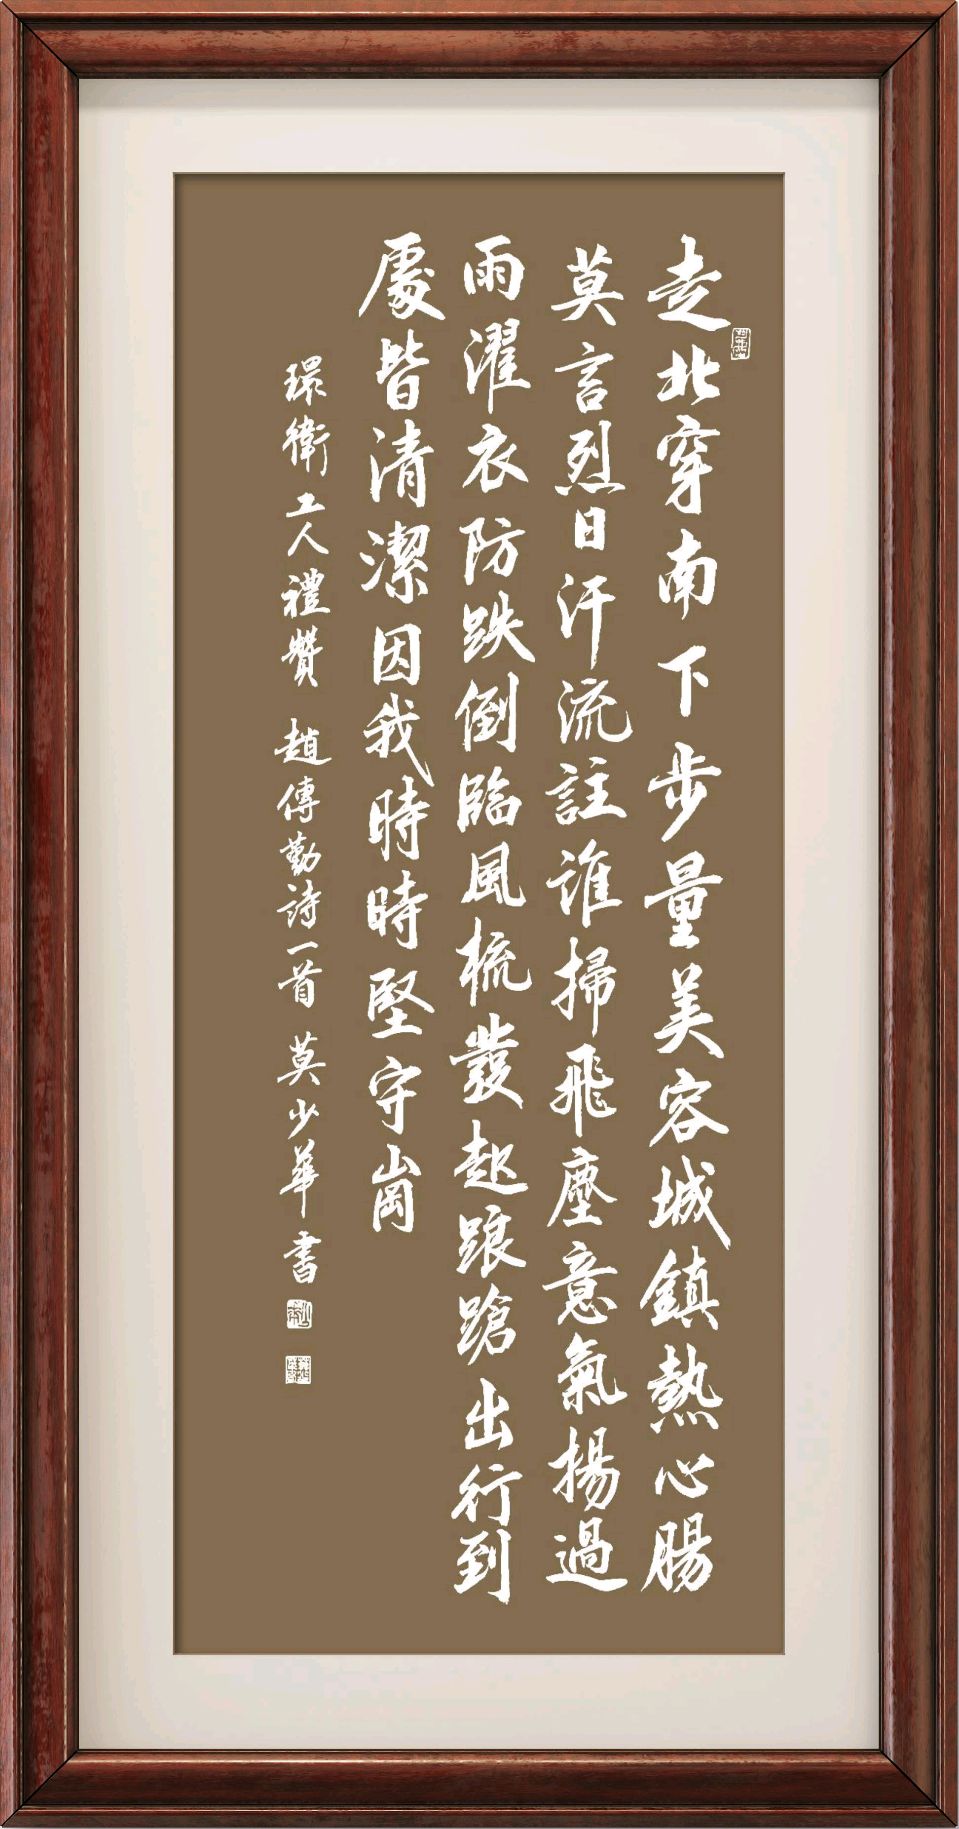 走北穿南下步量美容城鎮熱心腸
莫言烈日汗流註誰掃飛塵意氣揚過
雨濯衣防跌倒臨風梳發起踉蹌出行到
處皆清潔因我時時堅守崗
環衛工人禮贊 趙傳勤詩一首 莫少華書